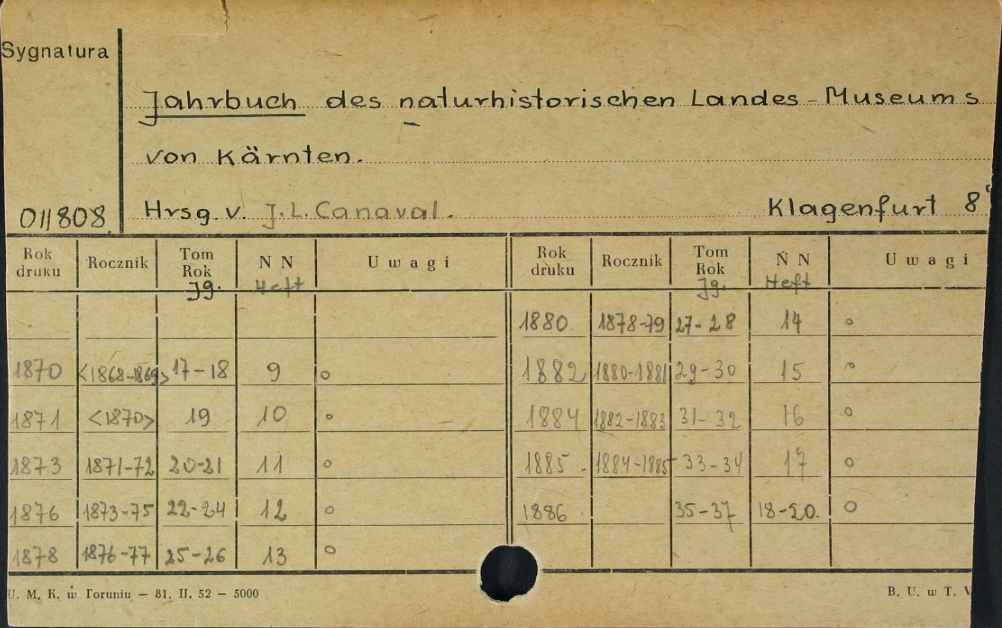 Sygnatura
Jahrbuch des naturhistorischen Landes-Museums
von Kärnten.
011808. Hrsg. v. J. L. Canaval. Klagenfurt 8°
Rok druku Rocznik Tom Rok Jg. N N Heft Uwagi Rok druku Rocznik Tom Rok Jg. N N Heft Uwagi
1880 1878-79 27-28 14 o
1870 <1868-1869> 17-18 9 o 1882 1880-1881 29-30 15 o
1871 <1870> 19 10 o 1884 1882-1883 31-32 16 o
1873 1871-72 20-21 11 o 1885 1884-1885 33-34 17 o
1876 1873-75 22-24 12 o 1886 35-37 18-20. o
1878 1876-77 25-26 13 o
U. M. K. w Toruniu — 81. II. 52 — 5000 B. U. w T.